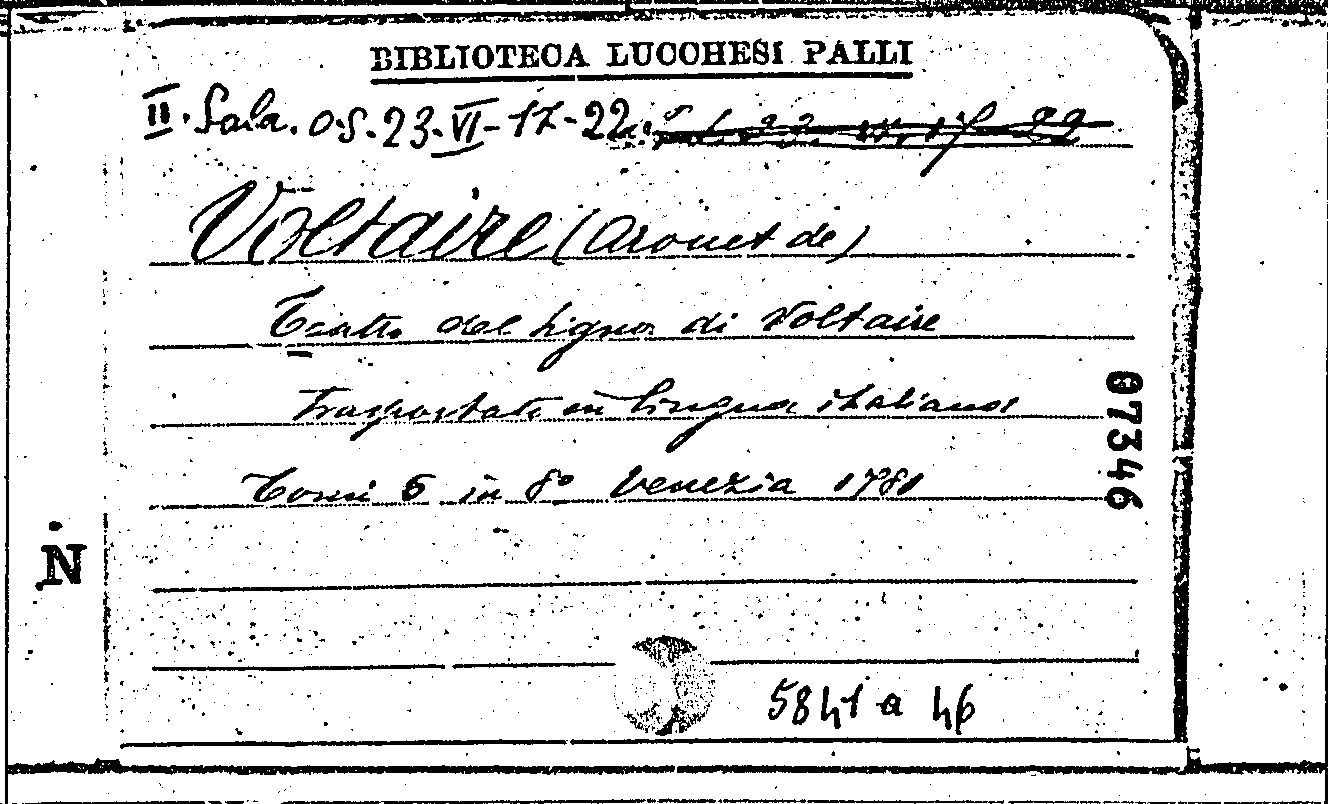 BIBLIOTECA LUCCHESI PALLI
II. Sala. O.S. 23. VI - 17 - 22.
Voltaire (Arouet de)
Teatro del Signor di Voltaire
Trasportato in lingua italiana
07346
Tomi 6 in 8° Venezia 1781
N
5841 a 46